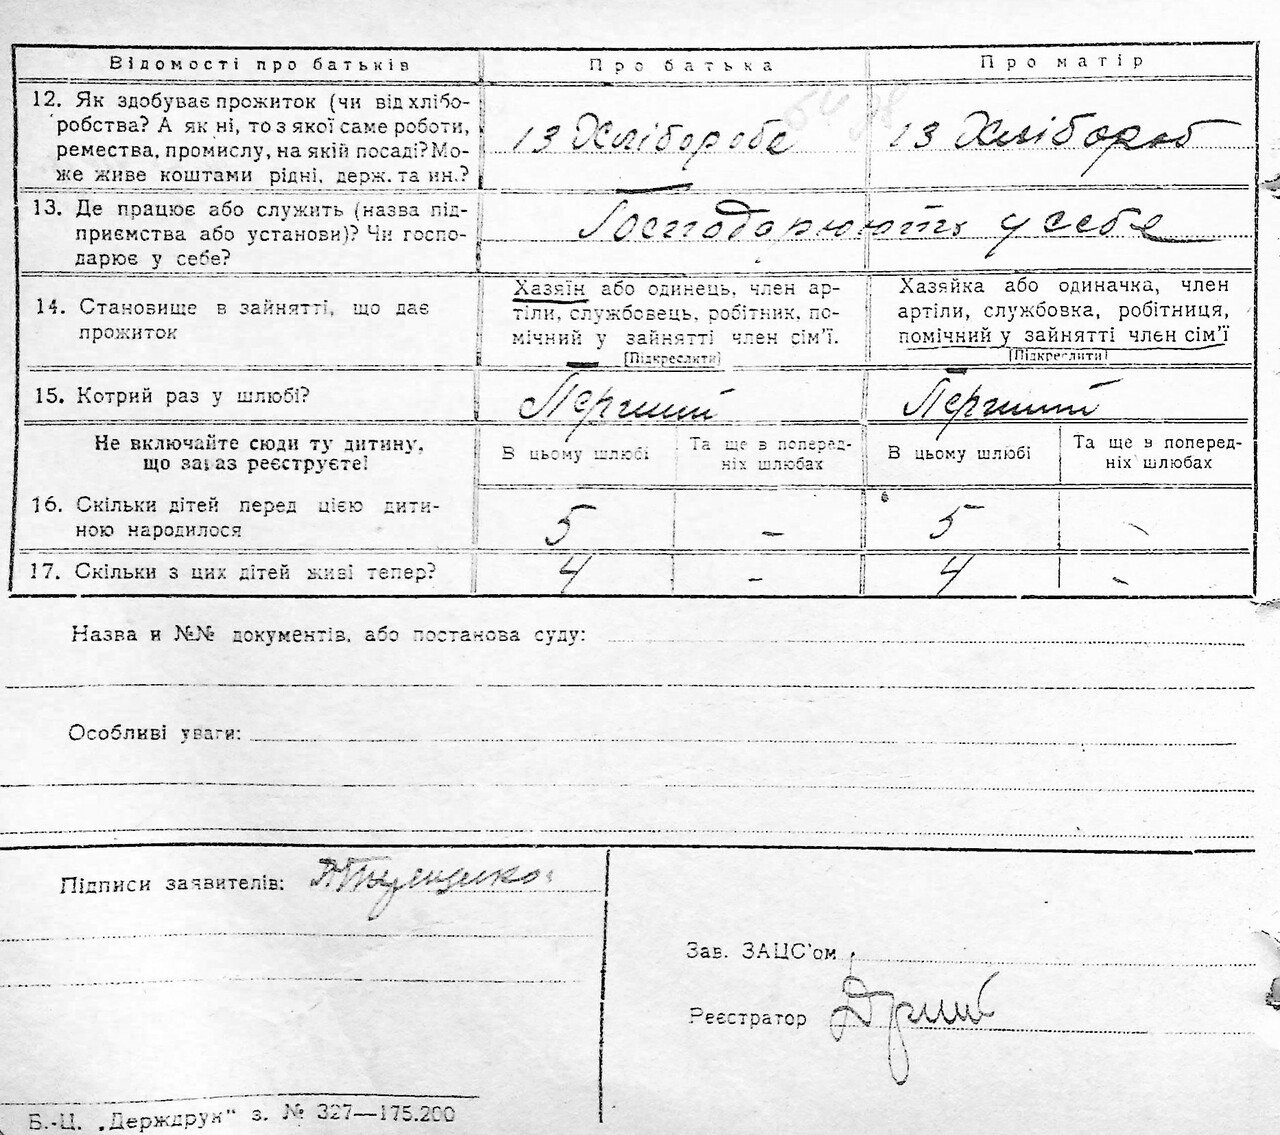 Відомості про батьків Про батька Про матір
12. Як здобуває прожиток (чи від хлібо-
робства? А як ні, то з якої саме роботи,
ремества, промислу, на якій посаді? Мо-
же живе коштами рідні, держ. та ин.?
13 Хлібороб 13 Хлібороб
13. Де працює або служить (назва під-
приємства або установи)? Чи госпо-
дарює у себе?
Господарюють у себе
14. Становище в зайнятті, що дає
прожиток
Хазяїн або одинець, член ар-
тіли, службовець, робітник, по-
мічний у зайнятті член сім'ї.
[Підкреслити]
Хазяйка або одиначка, член
артіли, службовка, робітниця,
помічний у зайнятті член сім'ї
[Підкреслити]
15. Котрий раз у шлюбі? Перший Перший
Не включайте сюди ту дитину,
що зараз реєструєте!
В цьому шлюбі
Та ще в поперед-
ніх шлюбах
В цьому шлюбі
Та ще в поперед-
ніх шлюбах
16. Скільки дітей перед цією дити-
ною народилося
5 - 5 -
17. Скільки з цих дітей живі тепер? 4 - 4 -
Назва и №№ документів, або постанова суду:
Особливі уваги:
Підписи заявителів:
Зав. ЗАЦС'ом
Реєстратор
Б.-Ц. „Держдрук" з. № 327—175.200